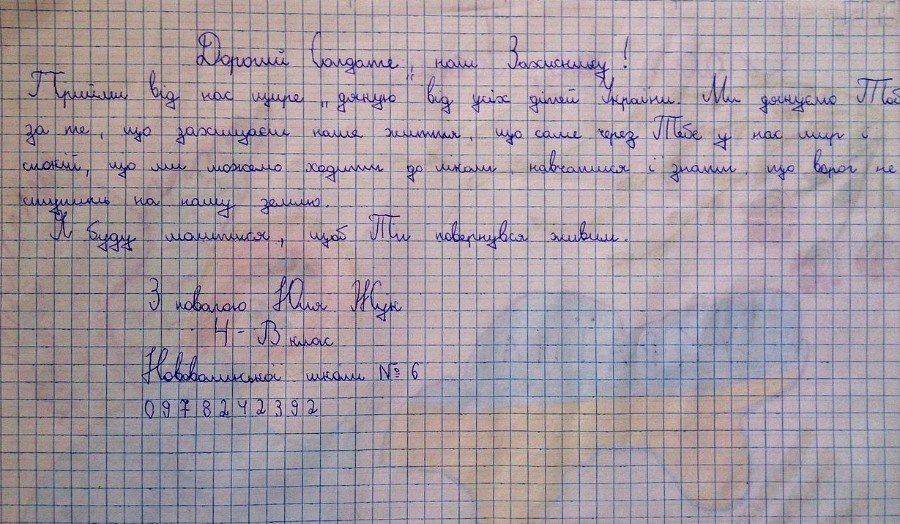 Дорогий Солдате, наш Захиснику!
Прийми від нас щире „дякую" від усіх дітей України. Ми дякуємо Тобі
за те, що захищаєш наше життя, що саме через Тебе у нас мир і
спокій, що ми можемо ходити до школи, навчатися і знати, що ворог не
ступить на нашу землю.
Я буду молитися, щоб Ти повернувся живим.
З повагою Юля Жук
4-В клас
Нововолинської школи №6
0978242392